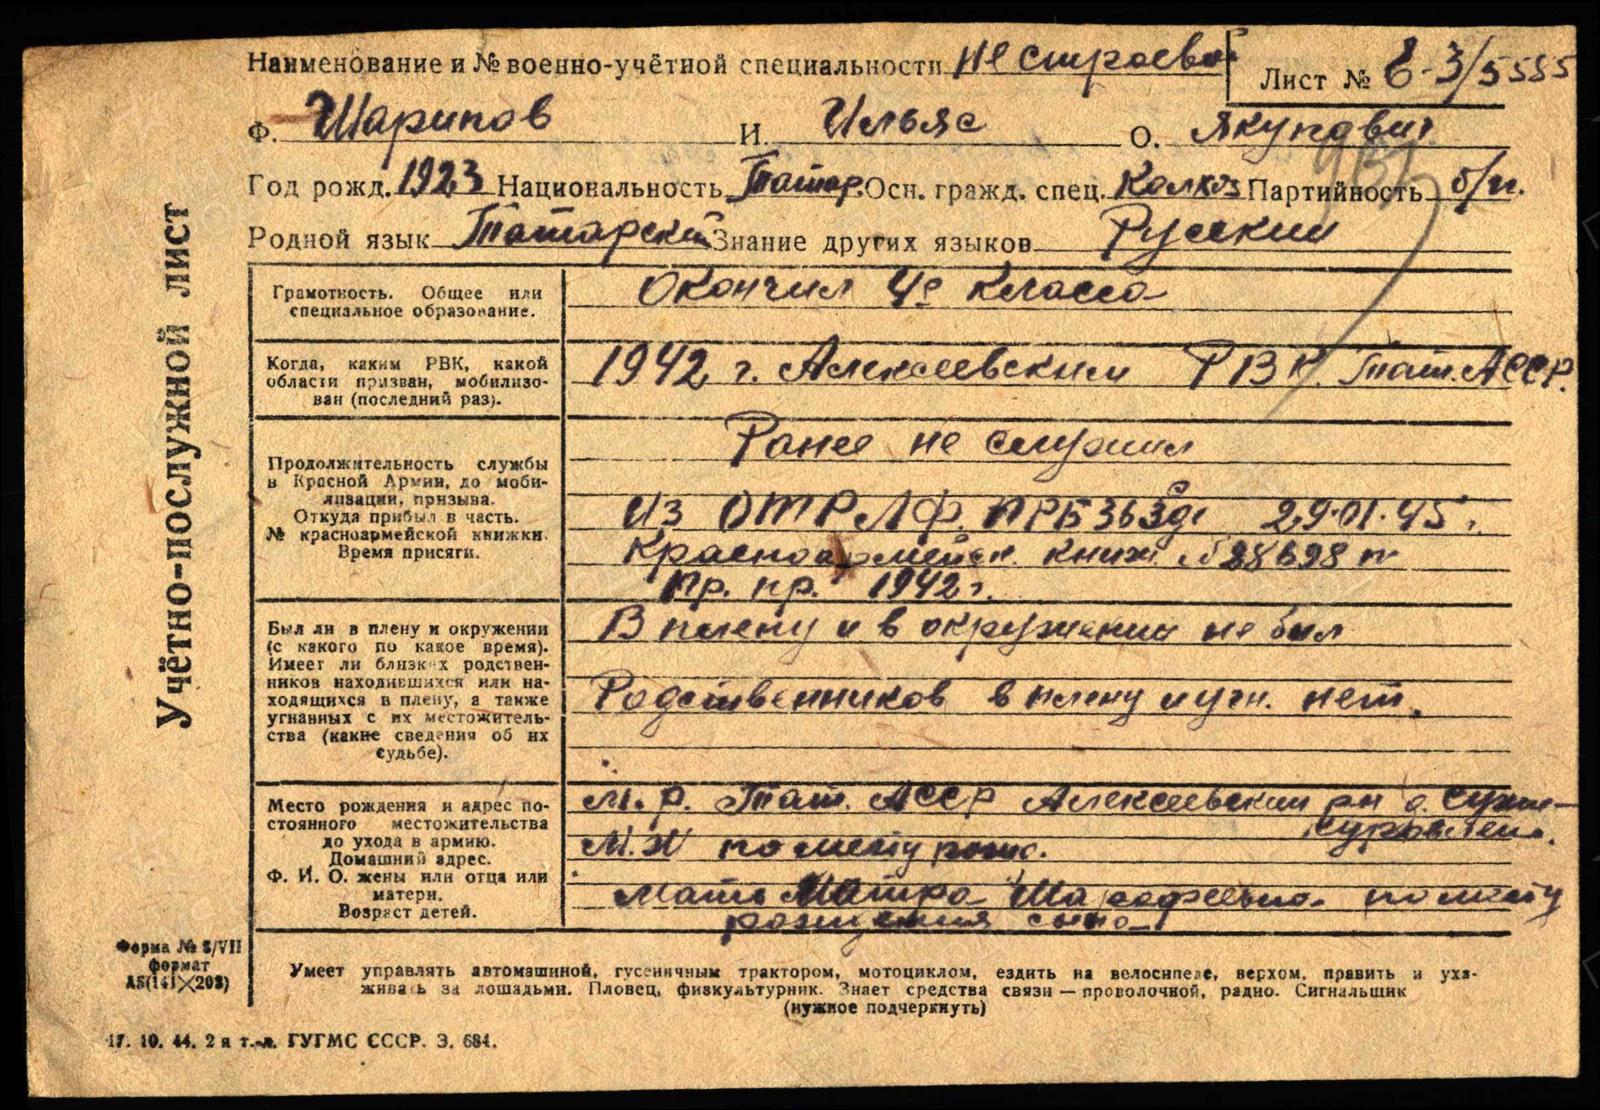 Наименование и № военно-учётной специальности Не строевой
Лист № Е-3/5555
Ф. Шарипов И. Ильяс О. Якупович
Год рожд. 1923 Национальность Татар. Осн. гражд. спец. Колхоз Партийность б/п.
Родной язык Татарский Знание других языков Русский
Учётно-послужной лист
Грамотность. Общее или
специальное образование.
Окончил 4е класса
Когда, каким РВК, какой
области призван, мобилизо-
ван (последний раз).
1942 г. Алексеевским РВК. Тат. АССР.
Продолжительность службы
в Красной Армии, до моби-
лизации, призыва.
Откуда прибыл в часть.
№ красноармейской книжки.
Время присяги.
Ранее не служил
из ОТР ЛФ. ПРБ 363 29.01.45г.
Красноармейск. книж №
Пр. пр. 1942г.
Был ли в плену и окружении
(с какого по какое время).
Имеет ли близких родствен-
ников находившихся или на-
ходящихся в плену, а также
угнанных с их местожитель-
ства (какие сведения об их
судьбе).
В плену и в окружении не был
Родственников в плену и угн. нет.
Место рождения и адрес по-
стоянного местожительства
до ухода в армию.
Домашний адрес.
Ф. И. О. жены или отца или
матери.
Возраст детей.
М. р. Тат. АССР Алексеевский рн д.
М.Ж по месту рожд.
Мать по месту
рождения сына
Форма № 3/VII
формат
А5(141×203)
Умеет управлять автомашиной, гусеничным трактором, мотоциклом, ездить на велосипеде, верхом, править и уха-
живать за лошадьми. Пловец, физкультурник. Знает средства связи — проволочной, радио. Сигнальщик
(нужное подчеркнуть)
17. 10. 44. 2 я т.-л. ГУГМС СССР. З. 684.